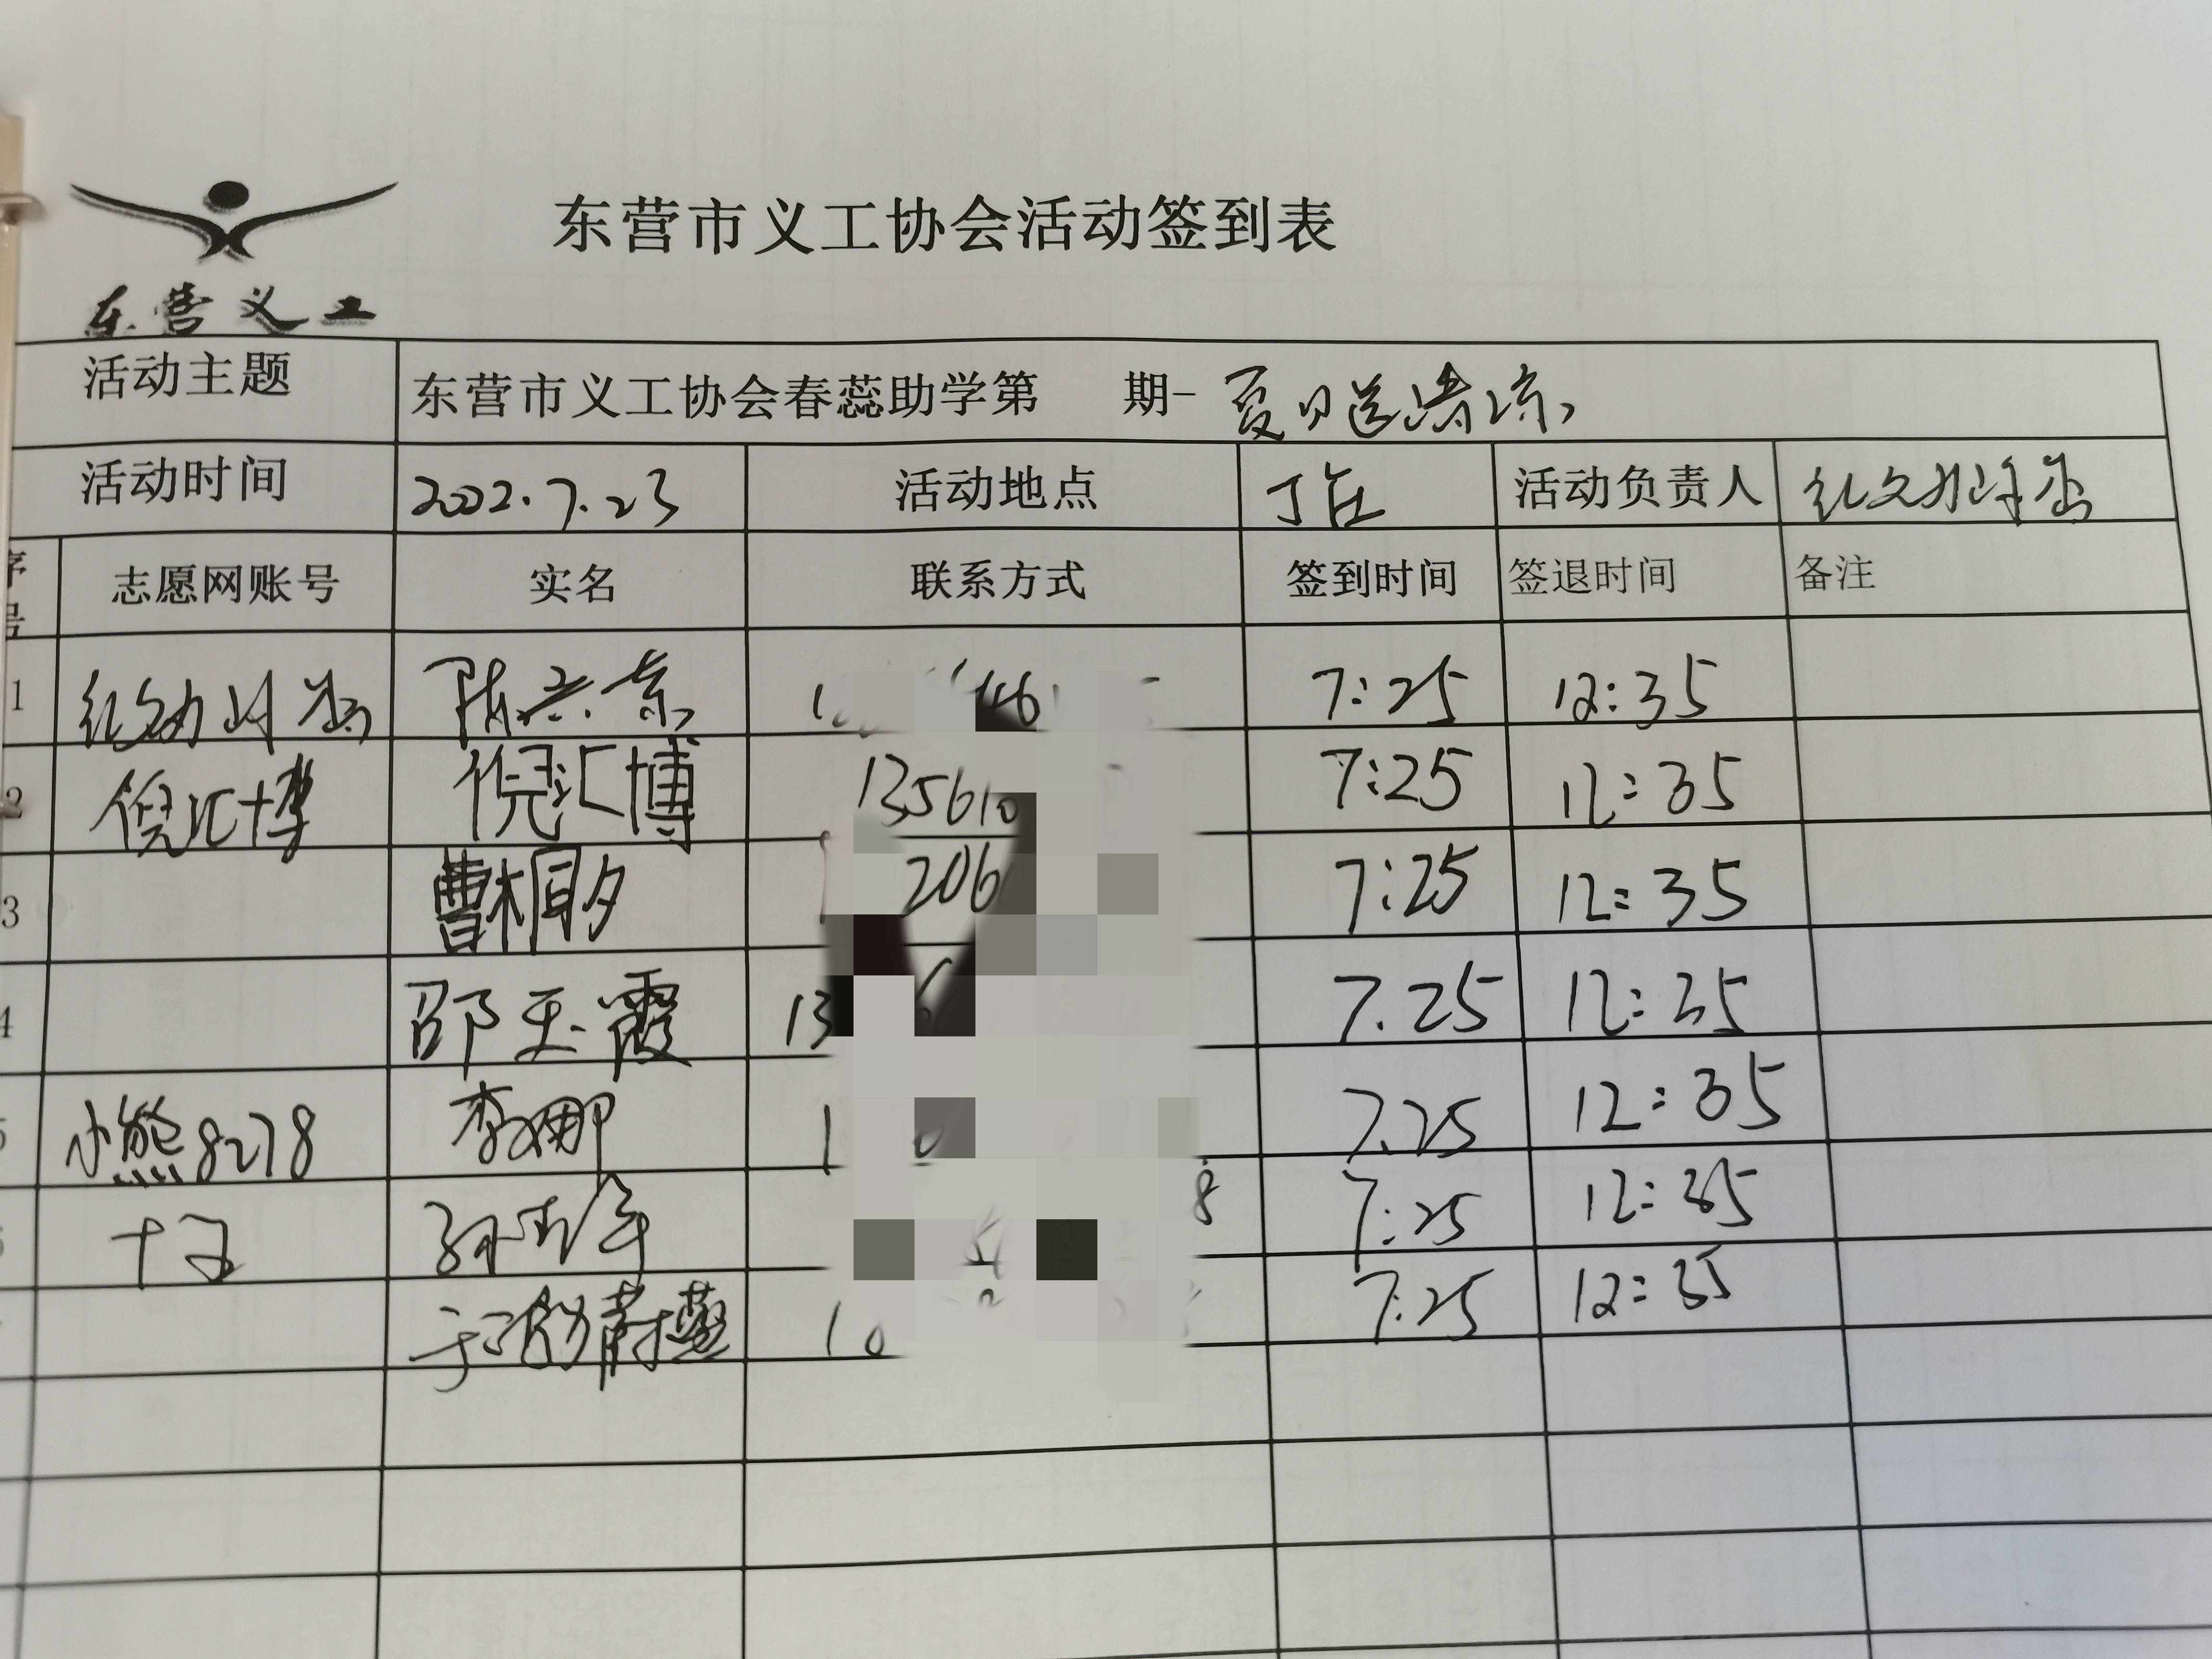 东营市义工协会活动签到表
东营义工
活动主题 东营市义工协会春蕊助学第 期- 夏日送清凉
活动时间 2022.7.23 活动地点 丁庄 活动负责人
序号 志愿网账号 实名 联系方式 签到时间 签退时间 备注
1 陈兴东 7:25 12:35
2 倪汇博 倪汇博 135610 7:25 12:35
3 曹桐夕 206 7:25 12:35
4 邵玉霞 13 7.25 12:35
5 小熊8278 李娜 1 7.25 12:35
十子 8 7:25 12:35
于 蔚 10 7:25 12:35